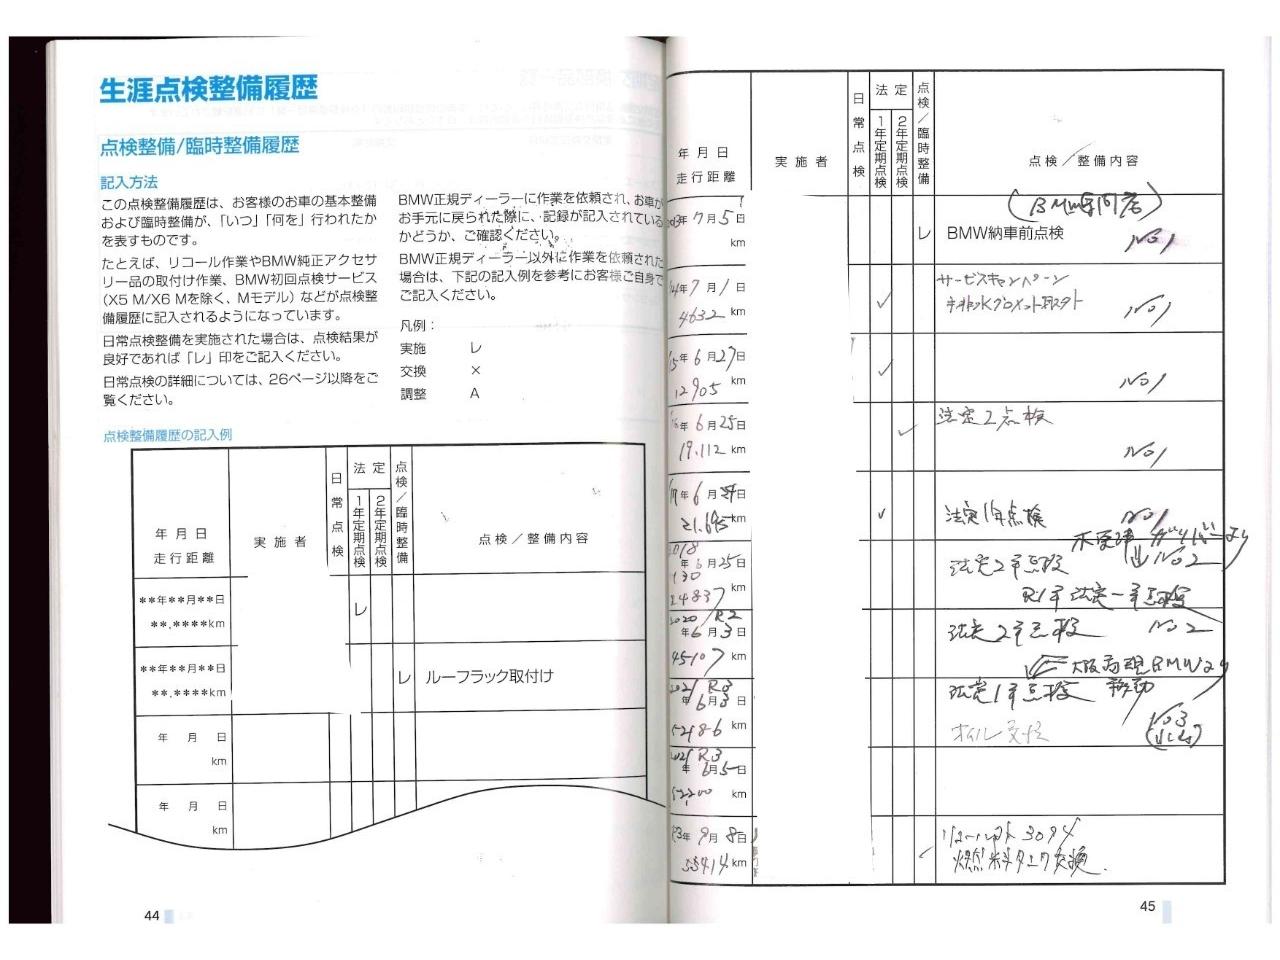 生涯点検整備履歴
点検整備/臨時整備履歴
記入方法
この点検整備履歴は、お客様のお車の基本整備
および臨時整備が、「いつ」「何を」行われたか
を表すものです。
たとえば、リコール作業やBMW純正アクセサ
リー品の取付け作業、BMW初回点検サービス
(X5 M/X6 Mを除く、Mモデル) などが点検整
備履歴に記入されるようになっています。
日常点検整備を実施された場合は、点検結果が
良好であれば「レ」印をご記入ください。
日常点検の詳細については、26ページ以降をご
覧ください。
BMW正規ディーラーに作業を依頼され、お車が
お手元に戻られた際に、記録が記入されている
かどうか、ご確認ください。
BMW正規ディーラー以外に作業を依頼された
場合は、下記の記入例を参考にお客様ご自身で
ご記入ください。
凡例：
実施 レ
交換 ×
調整 A
点検整備履歴の記入例
年月日
走行距離
実施者
日常点検
法定
1年定期点検
2年定期点検
点検/臨時整備
点検/整備内容
**年**月**日
**,****km
レ
**年**月**日
**,****km
レ ルーフラック取付け
年 月 日
km
年 月 日
km
44
年月日
走行距離
実施者
日常点検
法定
1年定期点検
2年定期点検
点検/臨時整備
点検/整備内容
年7月5日
km
レ BMW納車前点検
No1
年7月1日
4632 km
サービスキャンペーン
No1
15年6月27日
12905 km
No1
年6月25日
19,112 km
法定2点検
No1
年6月 日
21,695 km
法定1年点検
No1
2018
年6月25日
24837 km
法定2年点検
No2
R1年法定一年点検
2020/R2
年6月3日
45107 km
法定2年点検
No2
大阪 BMWより
移動
2021 R3
年6月3日
52186 km
法定1年点検
No3
オイル交換
2021 R3
年6月5日
52200 km
23年9月8日
55414 km
燃料タンク交換
45